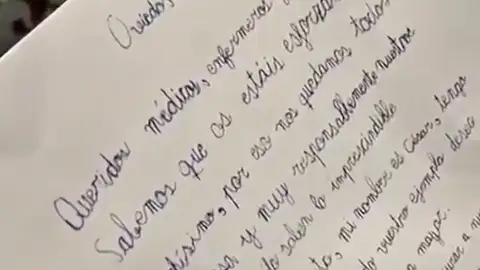 Oviedo,
Queridos médicos, enfermeros
Sabemos que os estáis esforzan
ísimo, por eso nos quedamos todos
sa, y muy responsablemente nuestros
do salen lo imprescindible
to, mi nombre es César, tengo
do vuestro ejemplo deseo
a mayor.